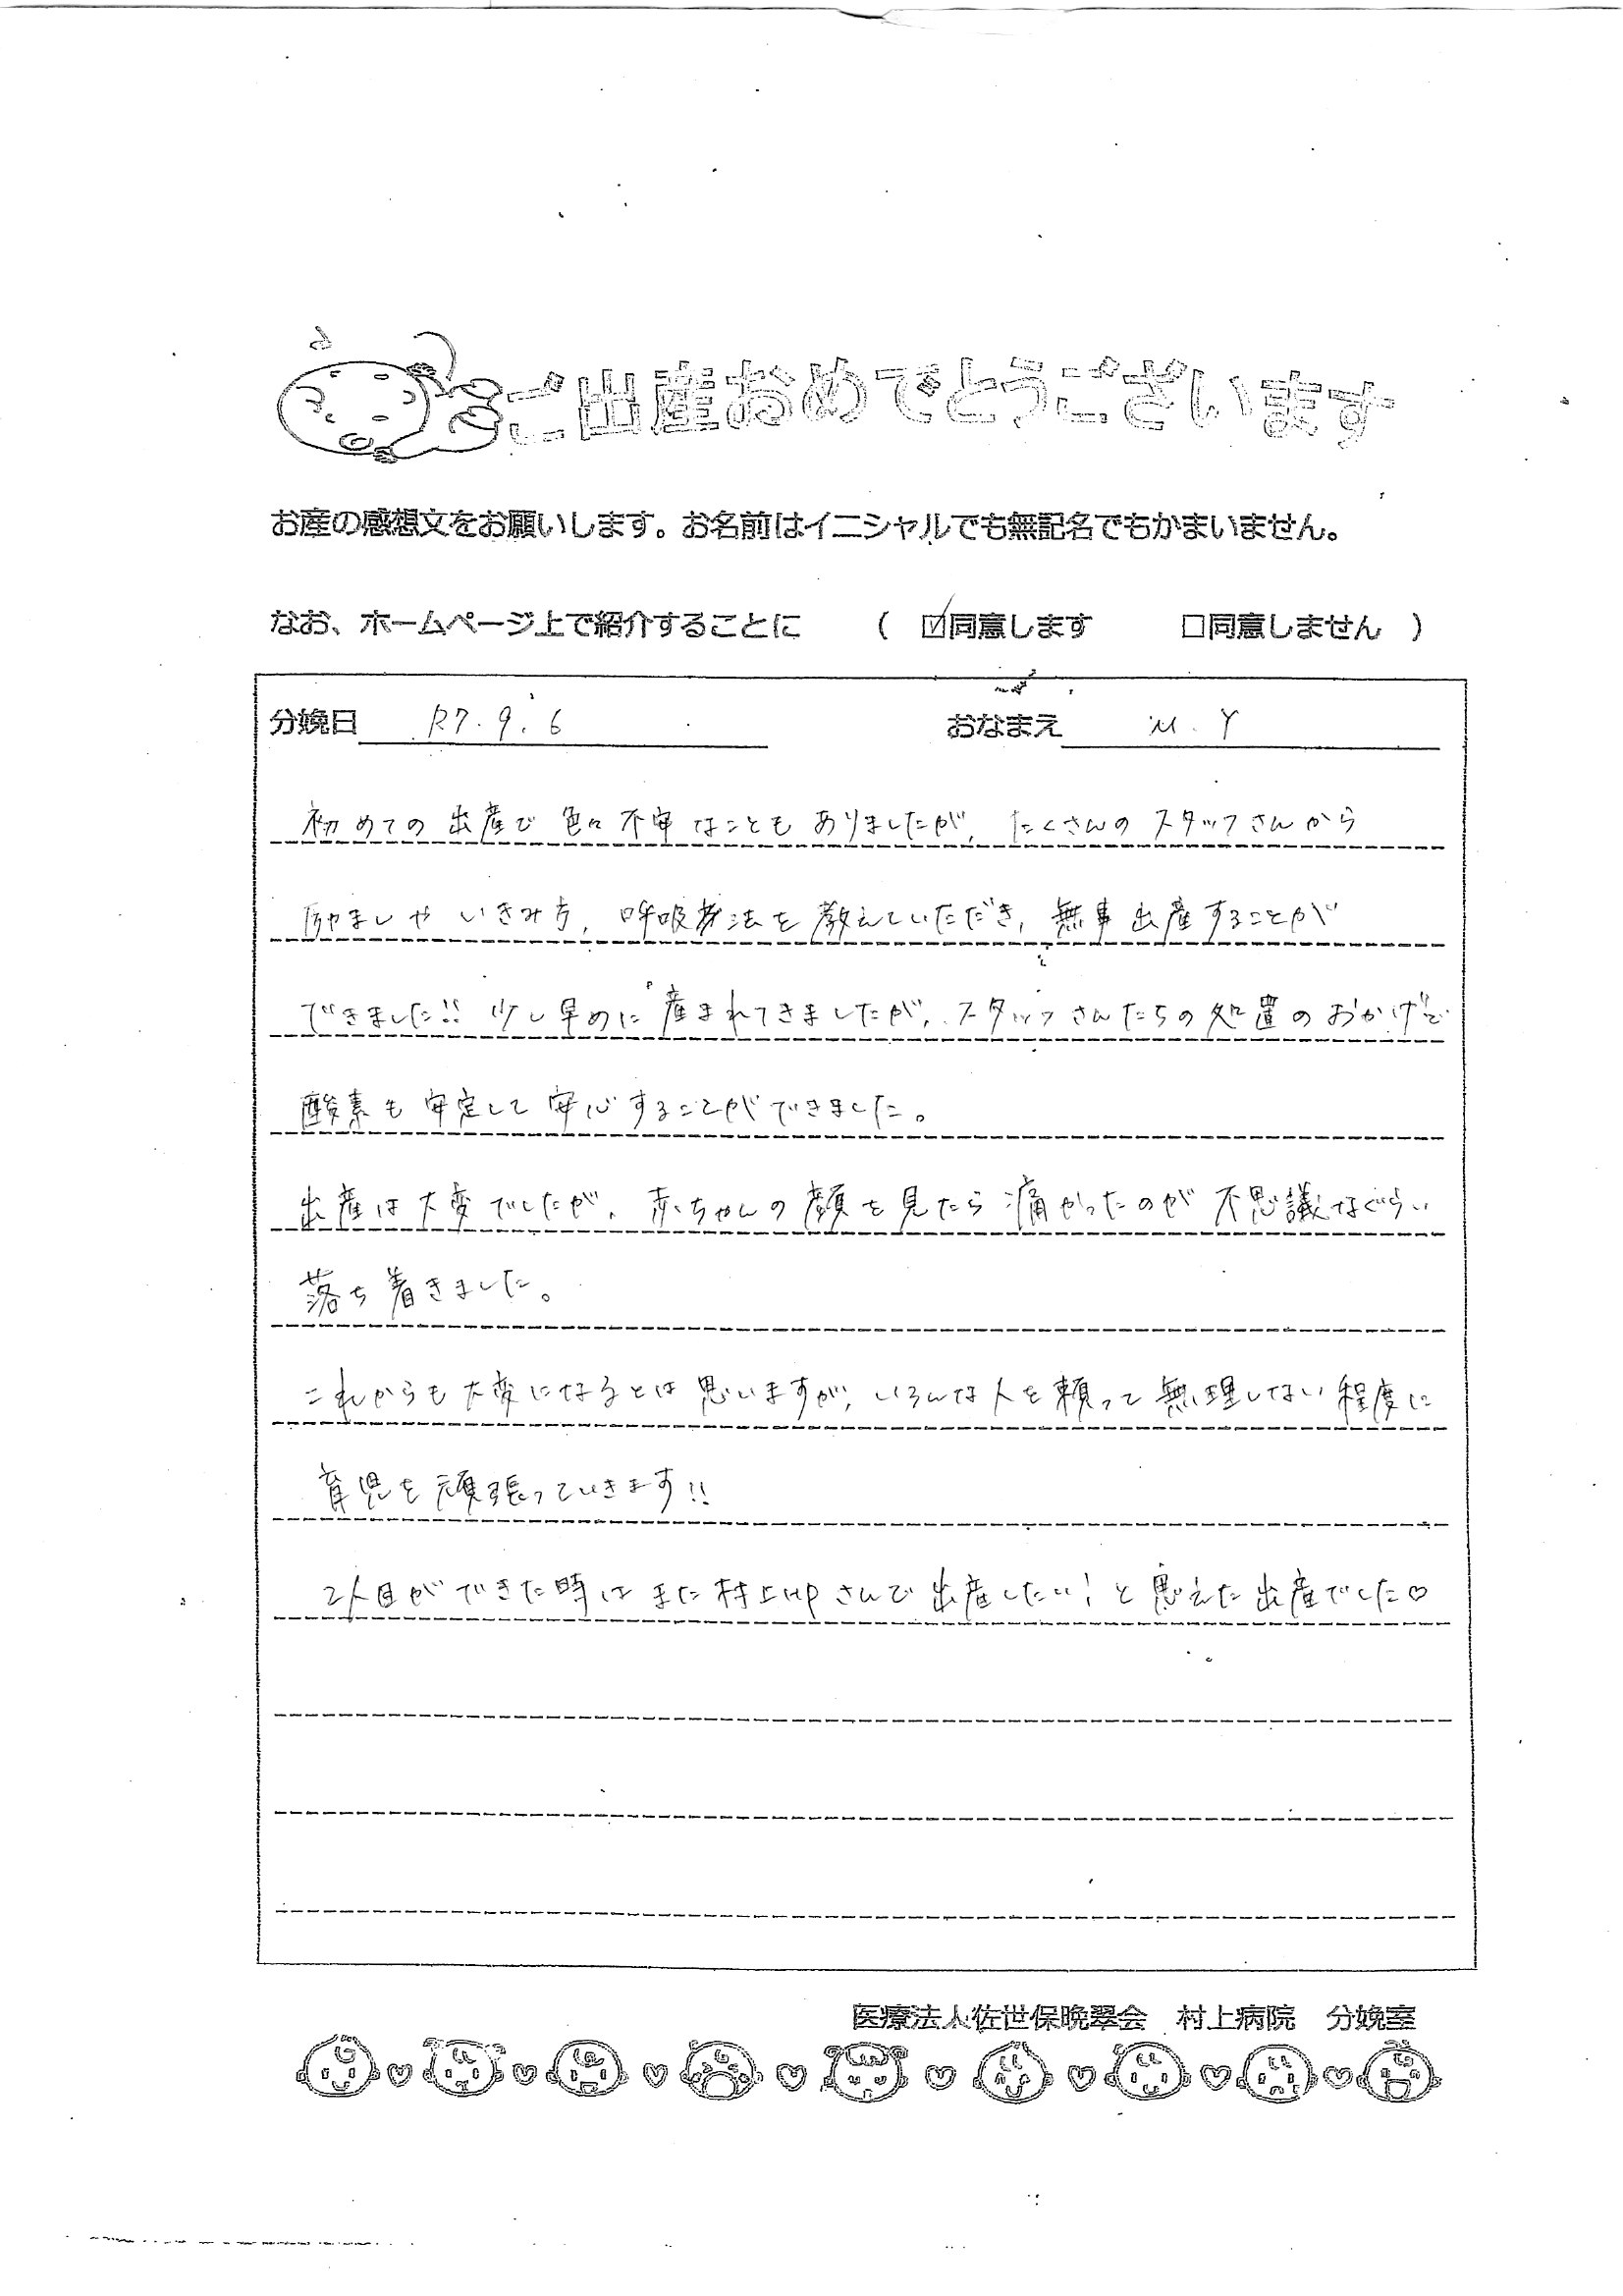 ご出産おめでとうございます
お産の感想文をお願いします。お名前はイニシャルでも無記名でもかまいません。
なお、ホームページ上で紹介することに ( ☑同意します □同意しません )
分娩日 R7.9.6 おなまえ M.Y
初めての出産で色々不安なこともありましたが、たくさんのスタッフさんから
励ましやいきみ方、呼吸方法を教えていただき、無事出産することが
できました!! 少し早めに産まれてきましたが、スタッフさんたちの処置のおかげで
酸素も安定して安心することができました。
出産は大変でしたが、赤ちゃんの顔を見たら痛かったのが不思議なぐらい
落ち着きました。
これからも大変になるとは思いますが、いろんな人を頼って無理しない程度に
育児を頑張っていきます!!
2人目ができた時はまた村上HPさんで出産したい!と思えた出産でした♡
医療法人佐世保晩翠会 村上病院 分娩室